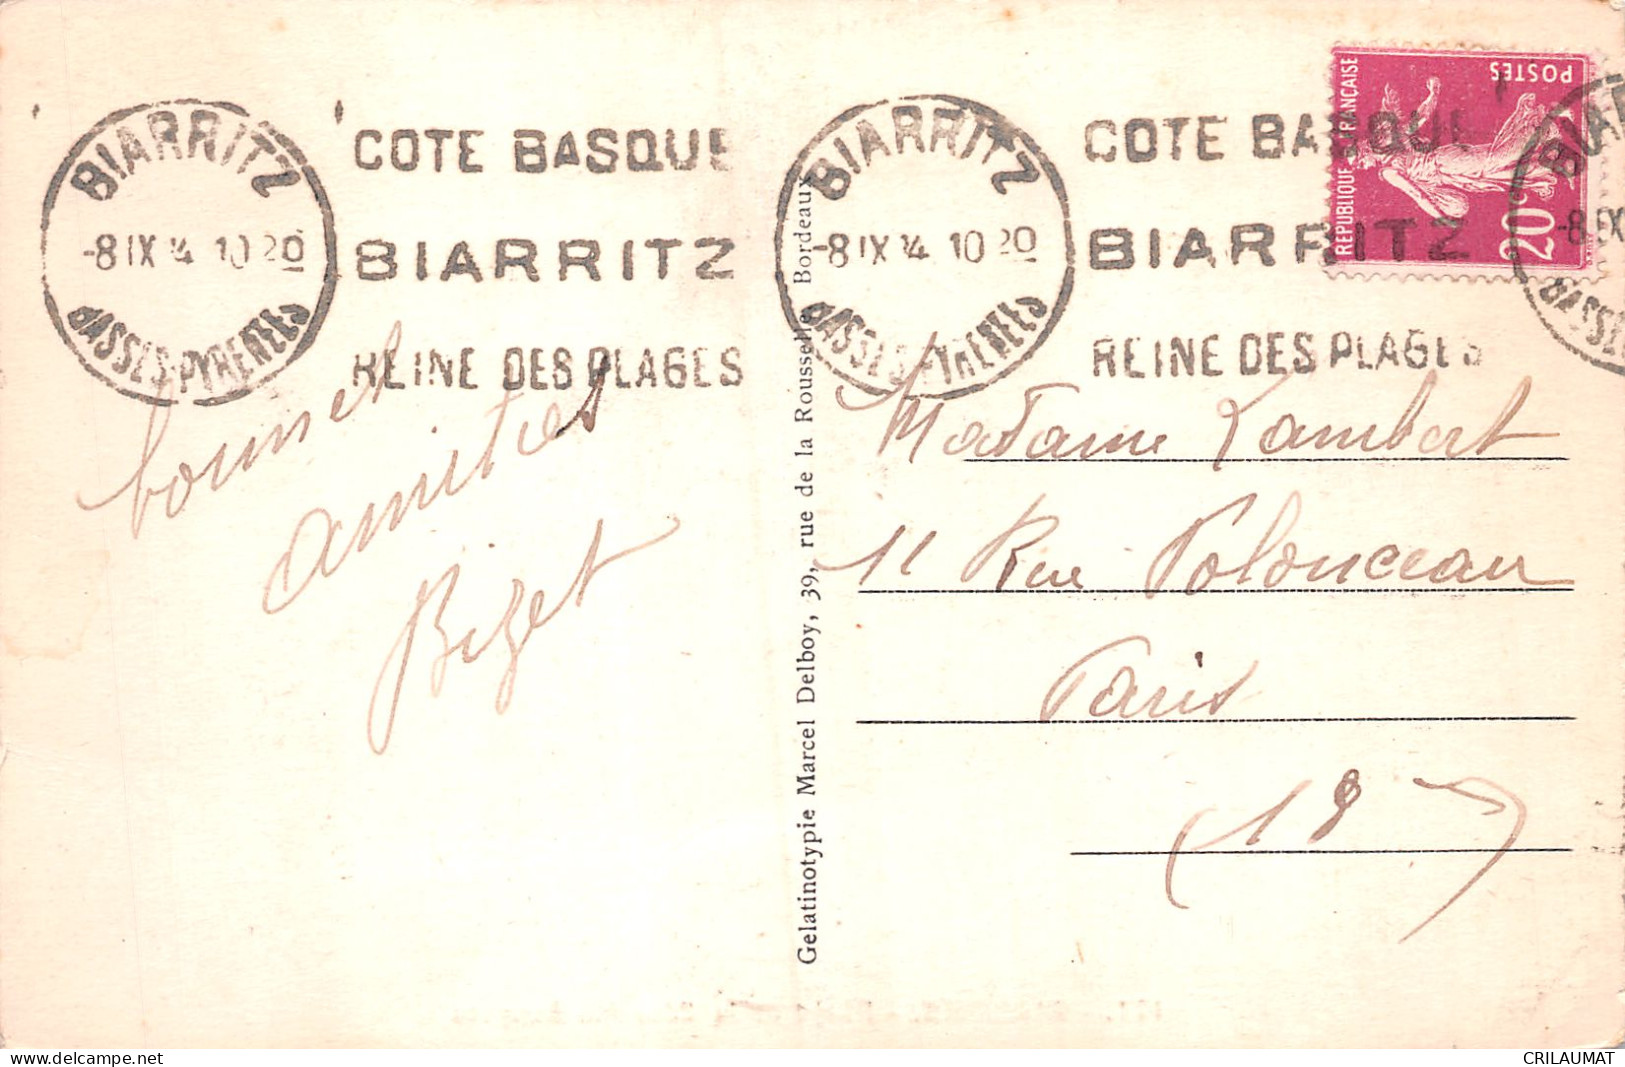 BIARRITZ
-8 IX 14 10 20
BASSES-PYRENEES
COTE BASQUE
BIARRITZ
REINE DES PLAGES
BIARRITZ
-8 IX 14 10 20
BASSES-PYRENEES
COTE BASQUE
BIARRITZ
REINE DES PLAGES
REPUBLIQUE FRANÇAISE
POSTES
20c
BIAR
-8 IX
BASSES
amitiés
Bizet
Gelatinotypie Marcel Delboy, 39, rue de la Rousselle, Bordeaux
Madame Lambert
11 Rue Polonceau
Paris
(18)
delcampe.net
CRILAUMAT